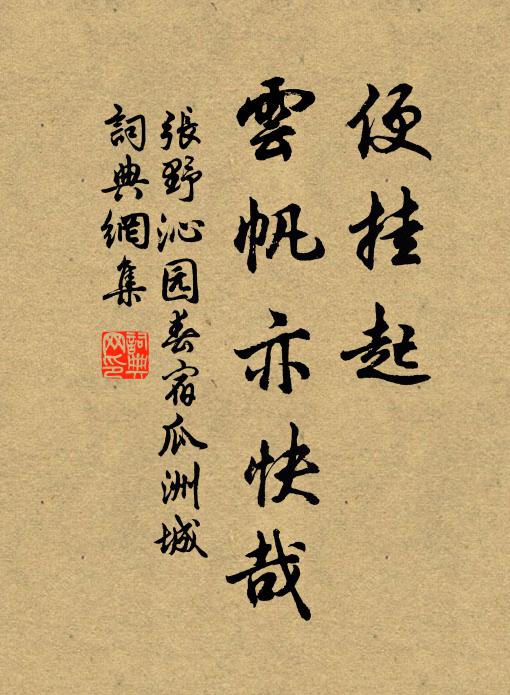 便挂起
雲帆亦快哉
張野沁园春宿瓜洲城
詞典網集
詞典
网印